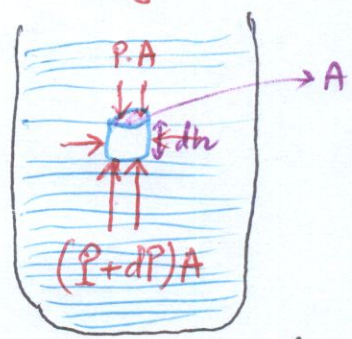 P.A
A
dh
(P+dP)A